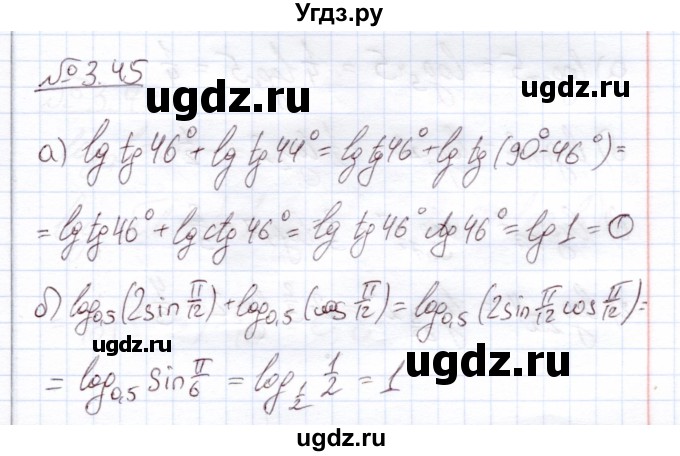 Угдз.ру
№ 3.45
ugdz.ru ugdz.ru
а) lg tg 46° + lg tg 44° = lg tg 46° + lg tg (90° - 46°) =
= lg tg 46° + lg ctg 46° = lg tg 46° ctg 46° = lg 1 = 0
б) log₀,₅ (2 sin π/12) + log₀,₅ (cos π/12) = log₀,₅ (2 sin π/12 cos π/12) =
ugdz.ru ugdz.ru
= log₀,₅ sin π/6 = log₁/₂ 1/2 = 1
ugdz.ru